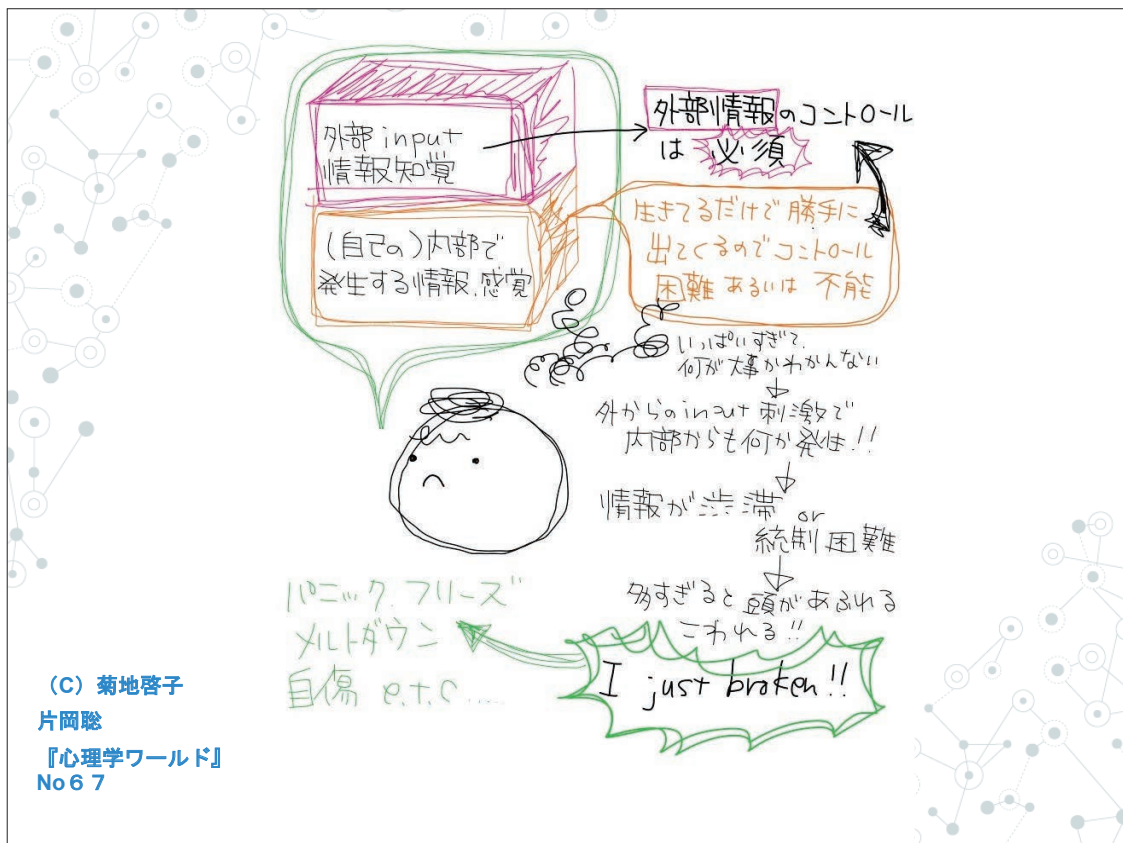 外部input
情報知覚
(自己の)内部で
発生する情報、感覚
外部情報のコントロール
は 必須
生きてるだけで 勝手に
出てくるのでコントロール
困難 あるいは 不能
いっぱいすぎて、
何が大事かわかんない
外からのinput 刺激で
内部からも何か発生!!
情報が渋滞
or
統制困難
多すぎると 頭があふれる
こわれる!!
I just broken!!
パニック、フリーズ
メルトダウン
自傷 e.t.c....
(C)菊地啓子
片岡聡
『心理学ワールド』
No67